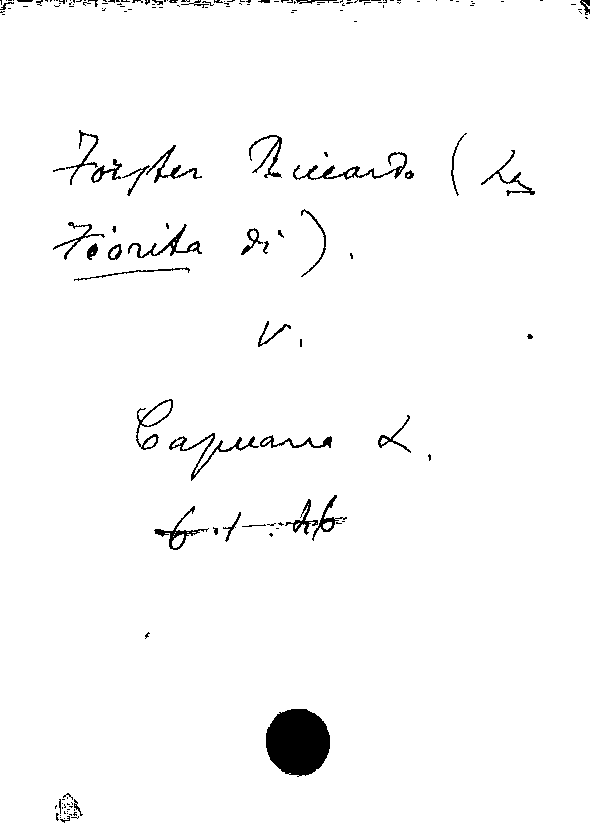 Forster Riccardo (La
Fiorita di).
V.
Capuana L.
6.1.